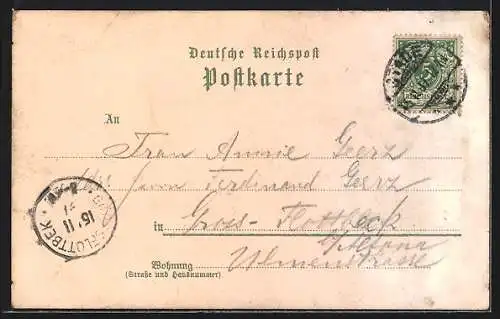 Deutsche Reichspost
Postkarte
An
Frau Annie Geerz
Herrn Ferdinand Geerz
in Gross-Flottbeck
b/Altona
Wohnung Ulmenstrasse
(Straße und Hausnummer)
FLOTTBEK
15 11